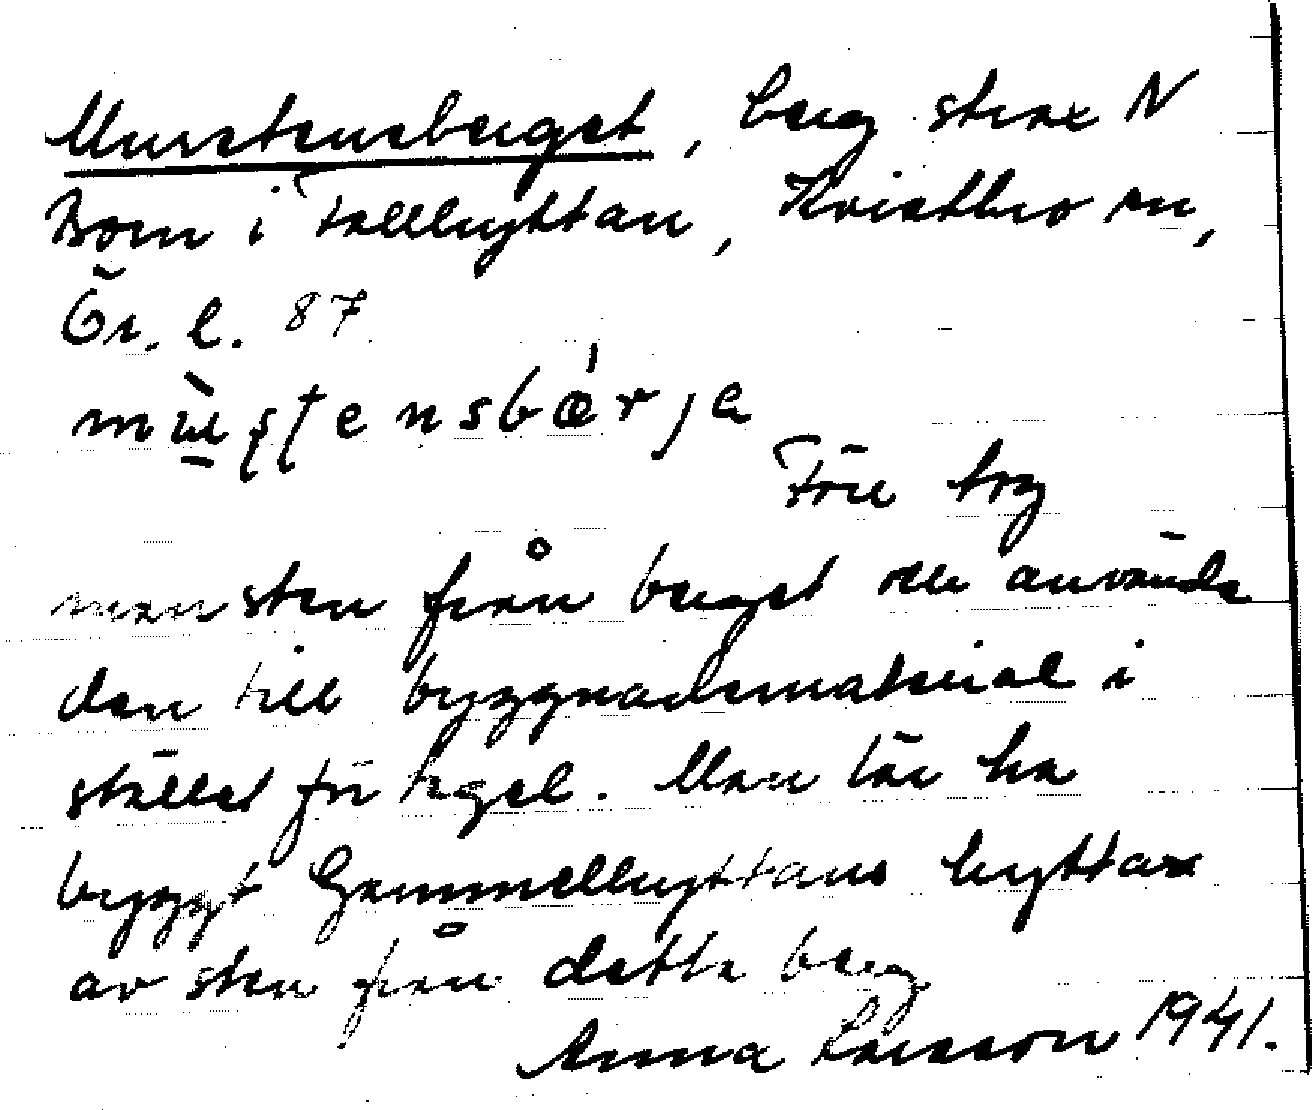 Murstensberget, berg strax N
Born i Tallhyttan, Kvistbro sn,
Ör. l. 87
mùs̩tensbǽrjə
Förr tog
man sten från berget och använde
den till byggnadsmaterial i
stället för tegel. Man lär ha
byggt Gammelhyttans hyttan
av sten från detta berg
Anna Larsson 1941.